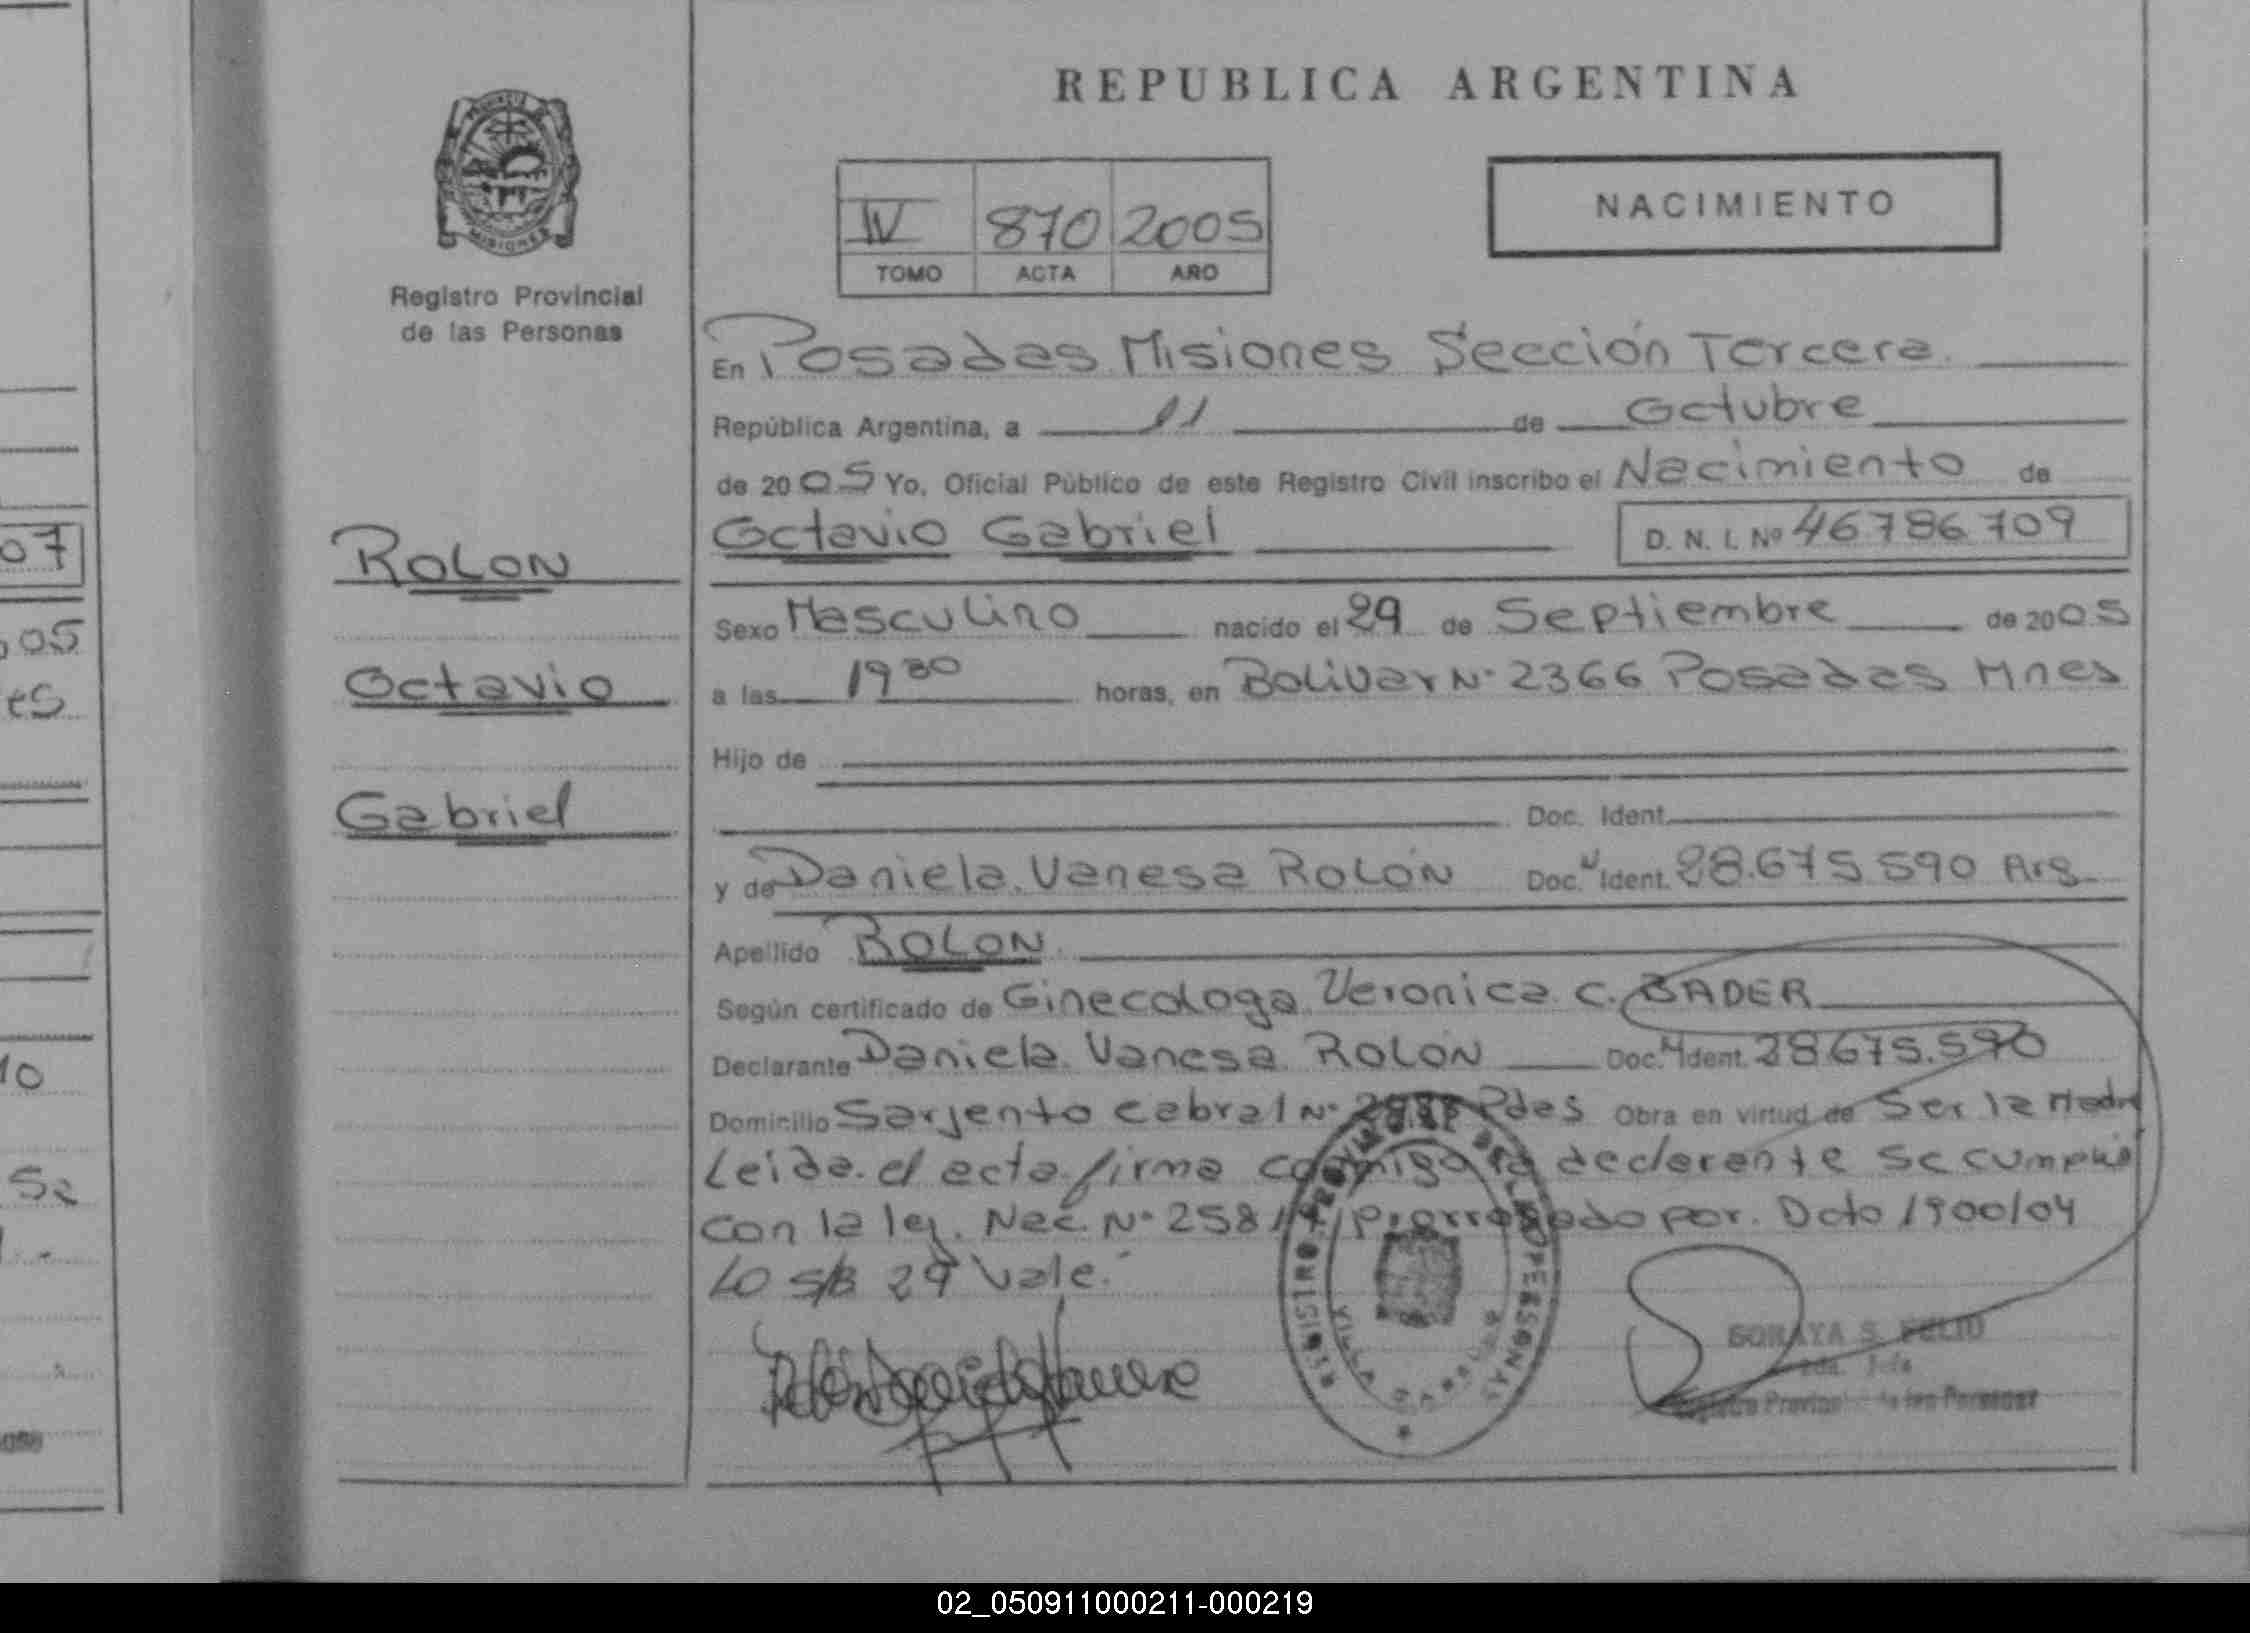 REPUBLICA ARGENTINA
NACIMIENTO
IV 870 2005
TOMO ACTA AÑO
MISIONES
Registro Provincial
de las Personas
En Posadas Misiones Sección Tercera
República Argentina, a 11 de Octubre
de 2005 Yo, Oficial Público de este Registro Civil inscribo el Nacimiento de
Octavio Gabriel D. N. I. Nº 46786709
ROLON
Octavio
Gabriel
Sexo Masculino nacido el 29 de Septiembre de 2005
a las 19 30 horas, en Bolivar Nº 2366 Posadas Mnes
Hijo de
Doc. Ident.
y de Daniela Vanesa ROLÓN Doc. Ident. 28.675.590 Arg
Apellido ROLON
Según certificado de Ginecologa Veronica C. BADER
Declarante Daniela Vanesa ROLÓN Doc. Ident. 28675.590
Domicilio Sarjento Cabral Nº Pdas Obra en virtud de Ser la Madre
Leida el acta firma conmigo la declarante se cumplió
con la ley Nac. Nº 25819 prorrogado por Dcto 1900/04
Lo s/B 29 Vale.
REGISTRO PROVINCIAL DE LAS PERSONAS
VILLA
SORAYA S.
Registro Provincial de las Personas
07
05
es
10
02_050911000211-000219